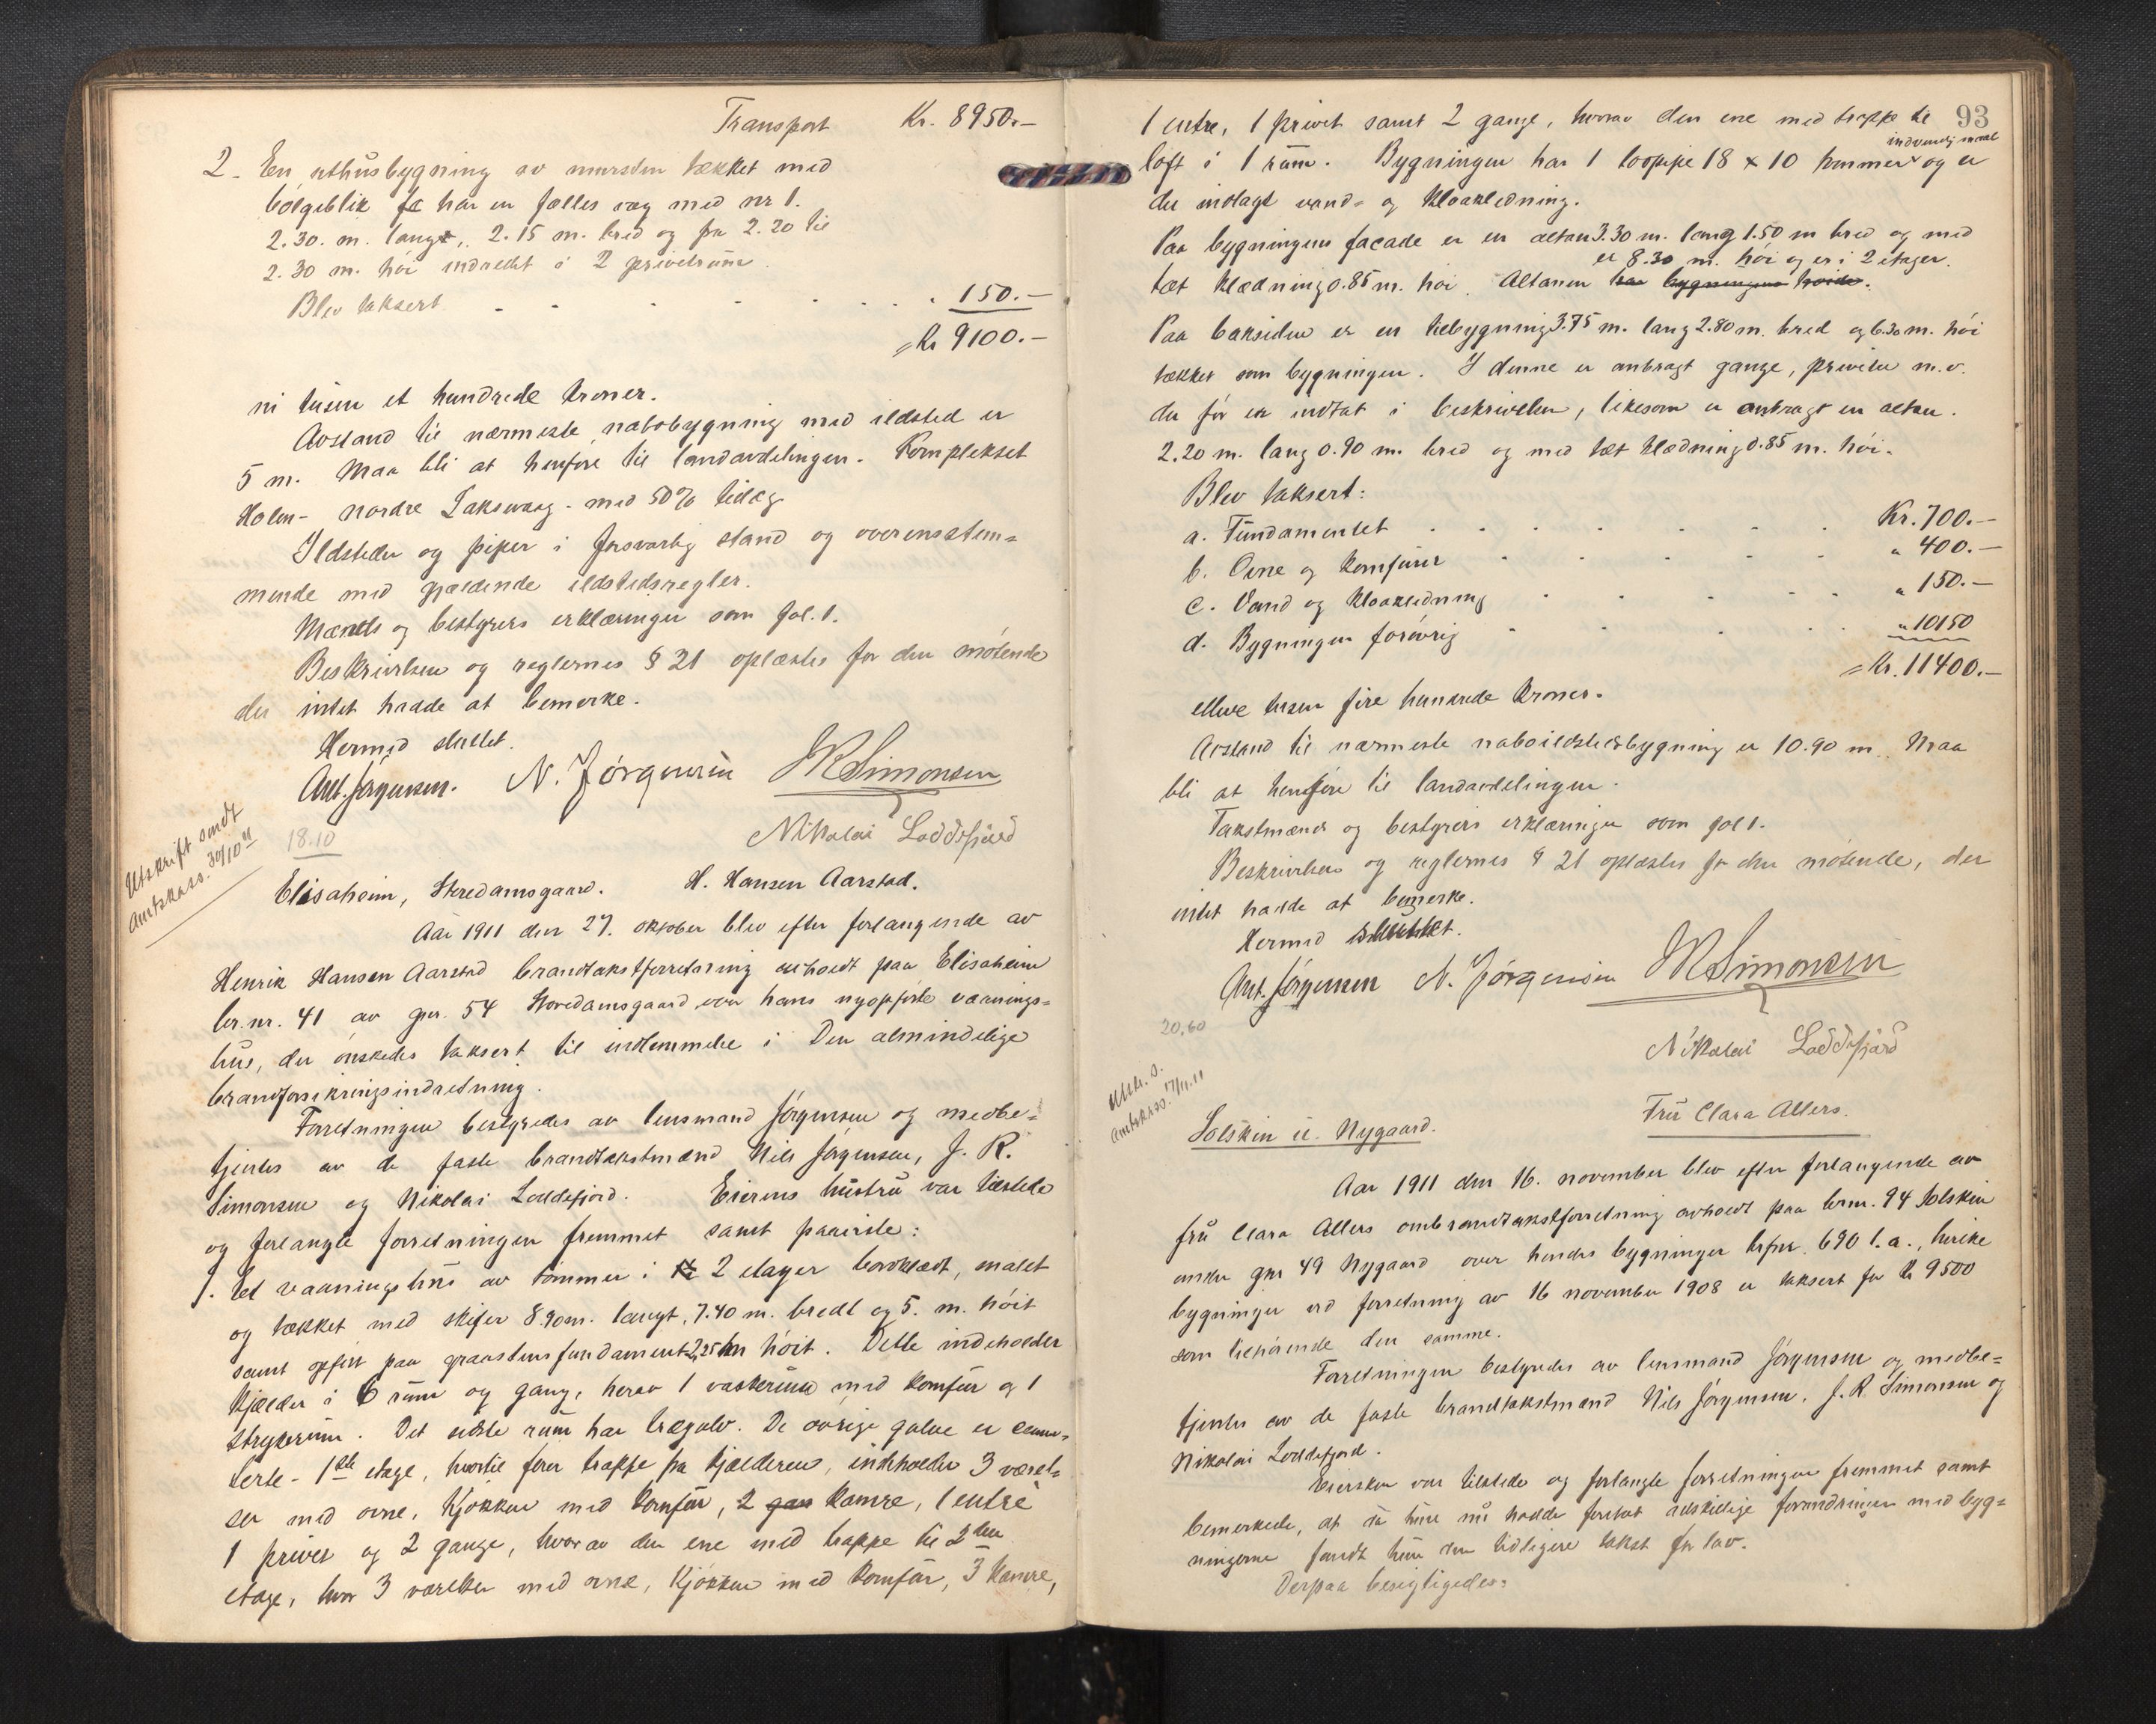 Transport Kr. 8950.-
2. En uthusbygning av mursten tækket med
bölgeblik har en fælles væg med nr 1.
2.30. m. lang, 2.15 m. bred og fra 2.20 til
2.30 m. höi indredet i 2 privetrum
Blev taksert - - - - 150.-
= Kr 9100.-
ni tusen et hundrede kroner.
Avstand til nærmeste nabobygning med ildsted er
5 m. Maa bli at henföre til landavdelingen. Komplekset
Holen - nordre Laksevaag - med 50% tillæg
Ildsteder og piper i forsvarlig stand og overensstem=
mende med gjældende ildstedsregler.
Mænds og bestyrers erklæringer som fol. 1.
Beskrivelsen og reglernes § 21 oplæstes for den mötende
der intet hadde at bemerke.
Hermed sluttet.
Ant. Jörgensen. N. Jörgensen JRSimonsen
Nikolai Loddefjord
Utskrift sendt
Amtskass. 30/10 11
18.10
Elisaheim, Storedamsgaard. H. Hansen Aarstad.
Aar 1911 den 27. oktober blev efter forlangende av
Henrik Hansen Aarstad brandtakstforretning avholdt paa Elisaheim
br.nr. 41 av gnr. 54 Storedamsgaard over hans nyopförte vaanings=
hus, der önskedes taksert til indlemmelse i Den almindelige
brandforsikringsindretning.
Forretningen bestyredes av lensmand Jörgensen og medbe=
tjentes av de faste brandtakstmænd Nils Jörgensen, J. R.
Simonsen og Nikolai Loddefjord. Eierens hustru var tilstede
og forlangte forretningen fremmet samt paaviste:
1. Et vaaningshus av tömmer i 2 etager bordklædt, malet
og tækket med skifer 8.90m. langt, 7.40 m. bredt og 5. m. höit
samt opfört paa graastensfundament 2,25 m höit. Dette indeholder
Kjælder i 6 rum og gang, herav 1 vaskerum med komfur og 1
strykerum. Det sidste rum har trægulv. De övrige gulve er cemen=
terte - 1ste etage, hvortil förer trappe fra kjælderen, indeholder 3 værel=
ser med ovne, kjökken med komfur, 2 gan kamre, 1 entré
1 privet og 2 gange, hvorav den ene med trappe til 2den
etage, hvor 3 værelser med ovne, kjökken med komfur, 3 kamre,
93
1 entre, 1 privet samt 2 gange, hvorav den ene med trappe til
indvendig maal
loft i 1 rum. Bygningen har 1 toppipe 18 x 10 tommer og er
der indlagt vand= og kloakledning.
Paa bygningens facade er en altan 3.30 m. lang 1.50 m bred og med
er 8.30 m. höi og er i 2 etager.
tæt klædning 0.85 m. höi. Altanen har bygningens höide.
Paa baksiden er en tilbygning 3.75 m. lang 2.80 m. bred og 6.30 m. höi
tækket som bygningen. I denne er anbragt gange, priveter m.v.
der för er indtat i beskrivelsen, likesom er anbragt en altan.
2.20 m. lang 0.90 m. bred og med tæt klædning 0.85 m. höi.
Blev taksert:
a. Fundamentet - - - - Kr. 700.-
b. Ovne og komfurer - - - - " 400.-
c. Vand og kloakledning - - - - " 150.-
d. Bygningen forövrig - - - - " 10150
= Kr. 11400.-
elleve tusen fire hundrede kroner.
Avstand til nærmeste naboildstedsbygning er 10.90 m. Maa
bli at henföre til landavdelingen.
Takstmænds og bestyrers erklæringer som fol 1.
Beskrivelsen og reglernes § 21 oplæstes for den mötende, der
intet hadde at bemerke.
Hermed sluttet.
Ant. Jörgensen N. Jörgensen JRSimonsen
Nikolai Loddefjord
20,60
Utskr. s.
Amtskass. 17/11.11
Solskin u. Nygaard. Fru Clara Allers.
Aar 1911 den 16. november blev efter forlangende av
fru Clara Allers ombrandtakstforretning avholdt paa brnr. 94 Solskin
under gnr 49 Nygaard over hendes bygninger brfnr. 690 l.a., hvilke
bygninger ved forretning av 16 november 1908 er taksert for kr 9500
som tilhörende den samme.
Forretningen bestyredes av lensmand Jörgensen og medbe=
tjentes av de faste brandtakstmænd Nils Jörgensen, J. R Simonsen og
Nikolai Loddefjord.
Eiersken var tilstede og forlangte forretningen fremmet samt
bemerkede, at da hun nu hadde foretat adskillige forandringer med byg=
ningerne fandt hun den tidligere takst for lav.
Derpaa besigtigedes: